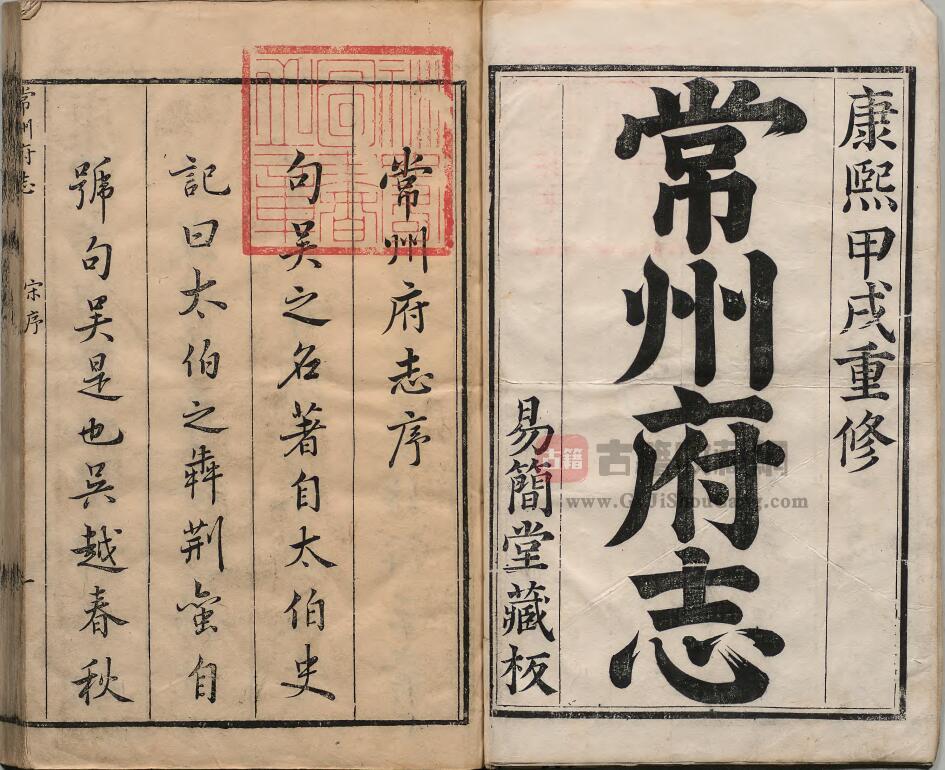 康熙甲戌重修
常州府志
易簡堂藏板
常州府志序
句吳之名著自太伯史
記曰太伯之犇荆蠻自
號句吳是也吳越春秋
常州府志 宋序 一
古籍
古籍 網